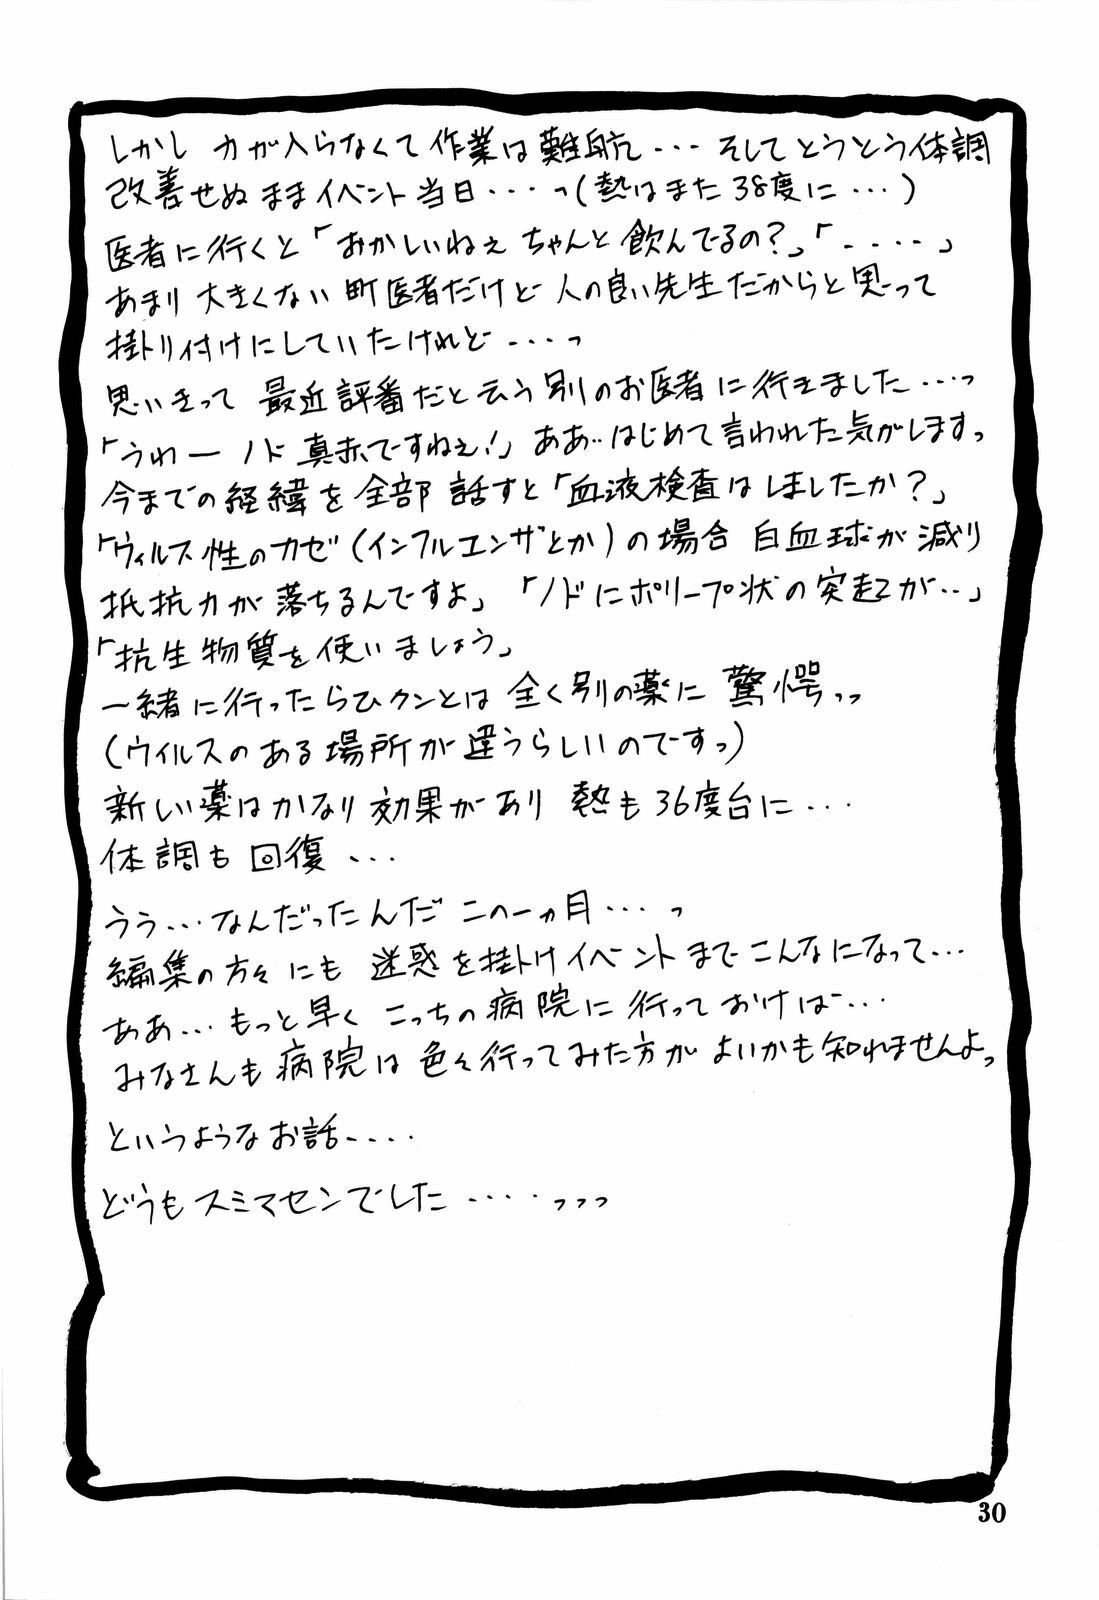 しかし 力が入らなくて作業は難航・・・ そしてとうとう体調
改善せぬままイベント当日・・・っ(熱はまた38度に・・・)
医者に行くと「おかしいねぇ ちゃんと飲んでるの?」「・・・・」
あまり大きくない町医者だけど人の良い先生だからと思って
掛かり付けにしていたけれど・・・・っ
思いきって 最近評番だと云う別のお医者に行きました・・・っ
「うわー ノド真赤ですねぇ!」ああ‥はじめて言われた気がしますっ
今までの経緯を全部話すと「血液検査はしましたか?」
「ウィルス性のカゼ(インフルエンザとか)の場合 白血球が減り
抵抗力が落ちるんですよ」「ノドにポリープ状の突起が・・」
「抗生物質を使いましょう」
一緒に行ったらひクンとは全く別の薬に驚愕っっ
(ウイルスのある場所が違うらしいのですっ)
新しい薬はかなり効果があり 熱も36度台に・・・
体調も回復・・・
うう・・・なんだったんだこの一ヵ月・・・っ
編集の方々にも迷惑を掛けイベントまでこんなになって・・・
ああ・・・もっと早くこっちの病院に行っておけば・・・
みなさんも病院は色々行ってみた方がよいかも知れませんよっ
というようなお話・・・・
どうもスミマセンでした・・・・っっっ
30